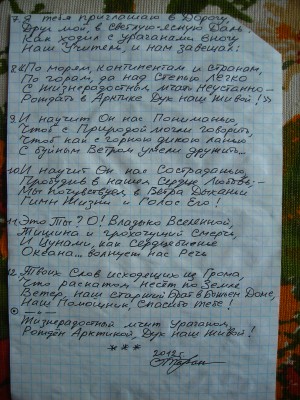 7. Я тебя приглашаю в Дорогу,
Друг мой, в светлую-ясную Даль.
Как ходил с ураганами внизу
Наш Учитель, и нам завещал:
8. «По морям, континентам и странам,
По горам, да над Степью легко
С Жизнерадостным мчать неустанно –
Рождать в Арктике Дух наш Живой!»
9. И научит Он нас Пониманью,
Чтоб с Природой могли говорить,
Чтоб как с горною дикою ланью
С буйным Ветром умели дружить...
10. И научит Он нас Состраданью,
Пробудив в нашем Сердце Любовь, –
Мы почувствуем в Ветра Дыханьи
Гимн Жизни и Голос Его!
11. Это Ты? О! Владыко Вселенной,
Тишина и грохочущий Смерч,
И Цунами, как Сердцебиение
Океана... волнует нас Речь
12. Твоих Слов исходящих из Грома,
Что раскатом несёт по Земле
Ветер, наш старший Брат в Божьем Доме,
Наш Помощник, Спасибо Тебе!
Жизнерадостный мчит Ураганом,
Рождён Арктикой, Дух наш Живой!
***
2012 г.